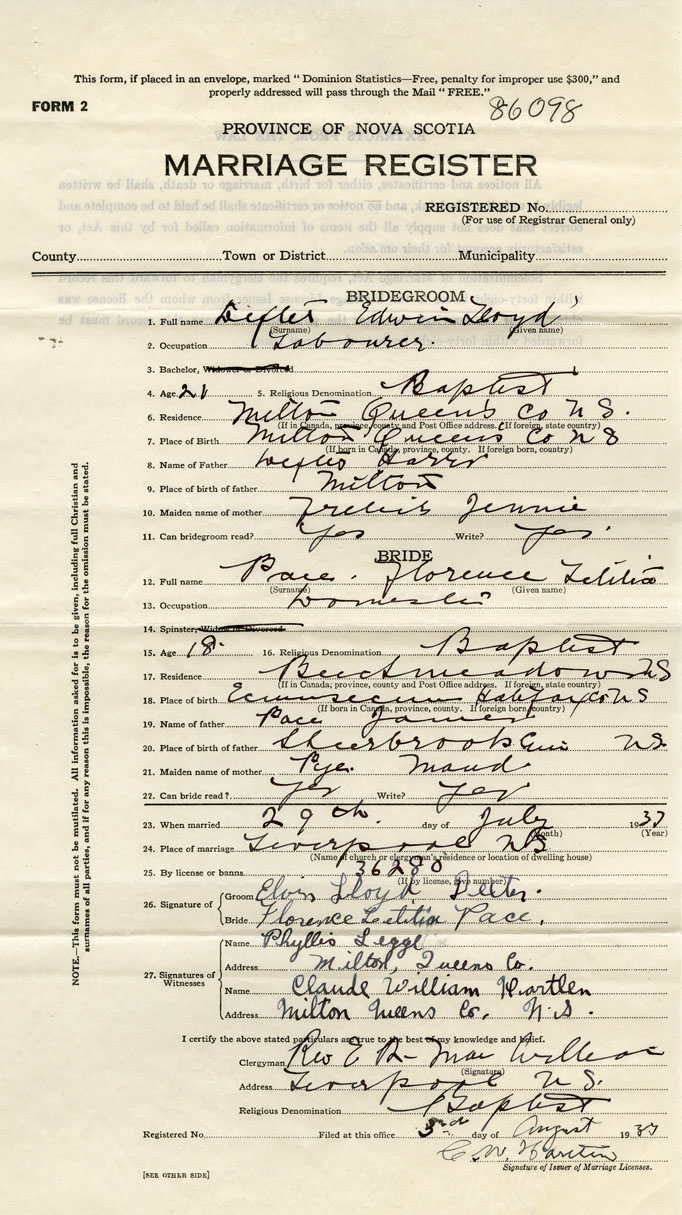 This form, if placed in an envelope, marked " Dominion Statistics—Free, penalty for improper use $300," and
properly addressed will pass through the Mail " FREE."
FORM 2
86098
PROVINCE OF NOVA SCOTIA
MARRIAGE REGISTER
REGISTERED No.
(For use of Registrar General only)
County Town or District Municipality
BRIDEGROOM
1. Full name Edwin Lloyd
(Surname) (Given name)
2. Occupation Labourer.
3. Bachelor, Widower or Divorced
4. Age 21 5. Religious Denomination Baptist
6. Residence Milton Queens Co N S.
(If in Canada, province, county and Post Office address. If foreign, state country)
7. Place of Birth Milton Queens Co N S
(If born in Canada, province, county. If foreign born, country)
8. Name of Father Harry
9. Place of birth of father Milton
10. Maiden name of mother Jennie
11. Can bridegroom read? Yes Write? Yes.
BRIDE
12. Full name Pace. Florence Letitia
(Surname) (Given name)
13. Occupation Domestic
14. Spinster, Widow or Divorced
15. Age 18. 16. Religious Denomination Baptist
17. Residence Beechmeadows NS
(If in Canada, province, county and Post Office address. If foreign, state country)
18. Place of birth Ecum secum Halifax Co NS
(If born in Canada, province, county. If foreign born country)
19. Name of father Pace James
20. Place of birth of father Sherbrooke N.S.
21. Maiden name of mother Pye. Maud
22. Can bride read? Yes Write? Yes
23. When married 29th. day of July 1937
(Month) (Year)
24. Place of marriage Liverpool NS
(Name of church or clergyman's residence or location of dwelling house)
25. By license or banns 36280
(If by license, give number)
26. Signature of
Groom Lloyd
Bride Florence Letitia Pace.
27. Signatures of Witnesses
Name Phyllis Legge
Address Milton, Queens Co.
Name Claude William Hartlen
Address Milton Queens Co. N.S.
I certify the above stated particulars are true to the best of my knowledge and belief.
Clergyman Rev E
(Signature)
Address Liverpool N S.
Religious Denomination Baptist
Registered No. Filed at this office 3rd day of August 1937
C.W.
Signature of Issuer of Marriage Licenses.
[SEE OTHER SIDE]
NOTE.—This form must not be mutilated. All information asked for is to be given, including full Christian and
surnames of all parties, and if for any reason this is impossible, the reason for the omission must be stated.